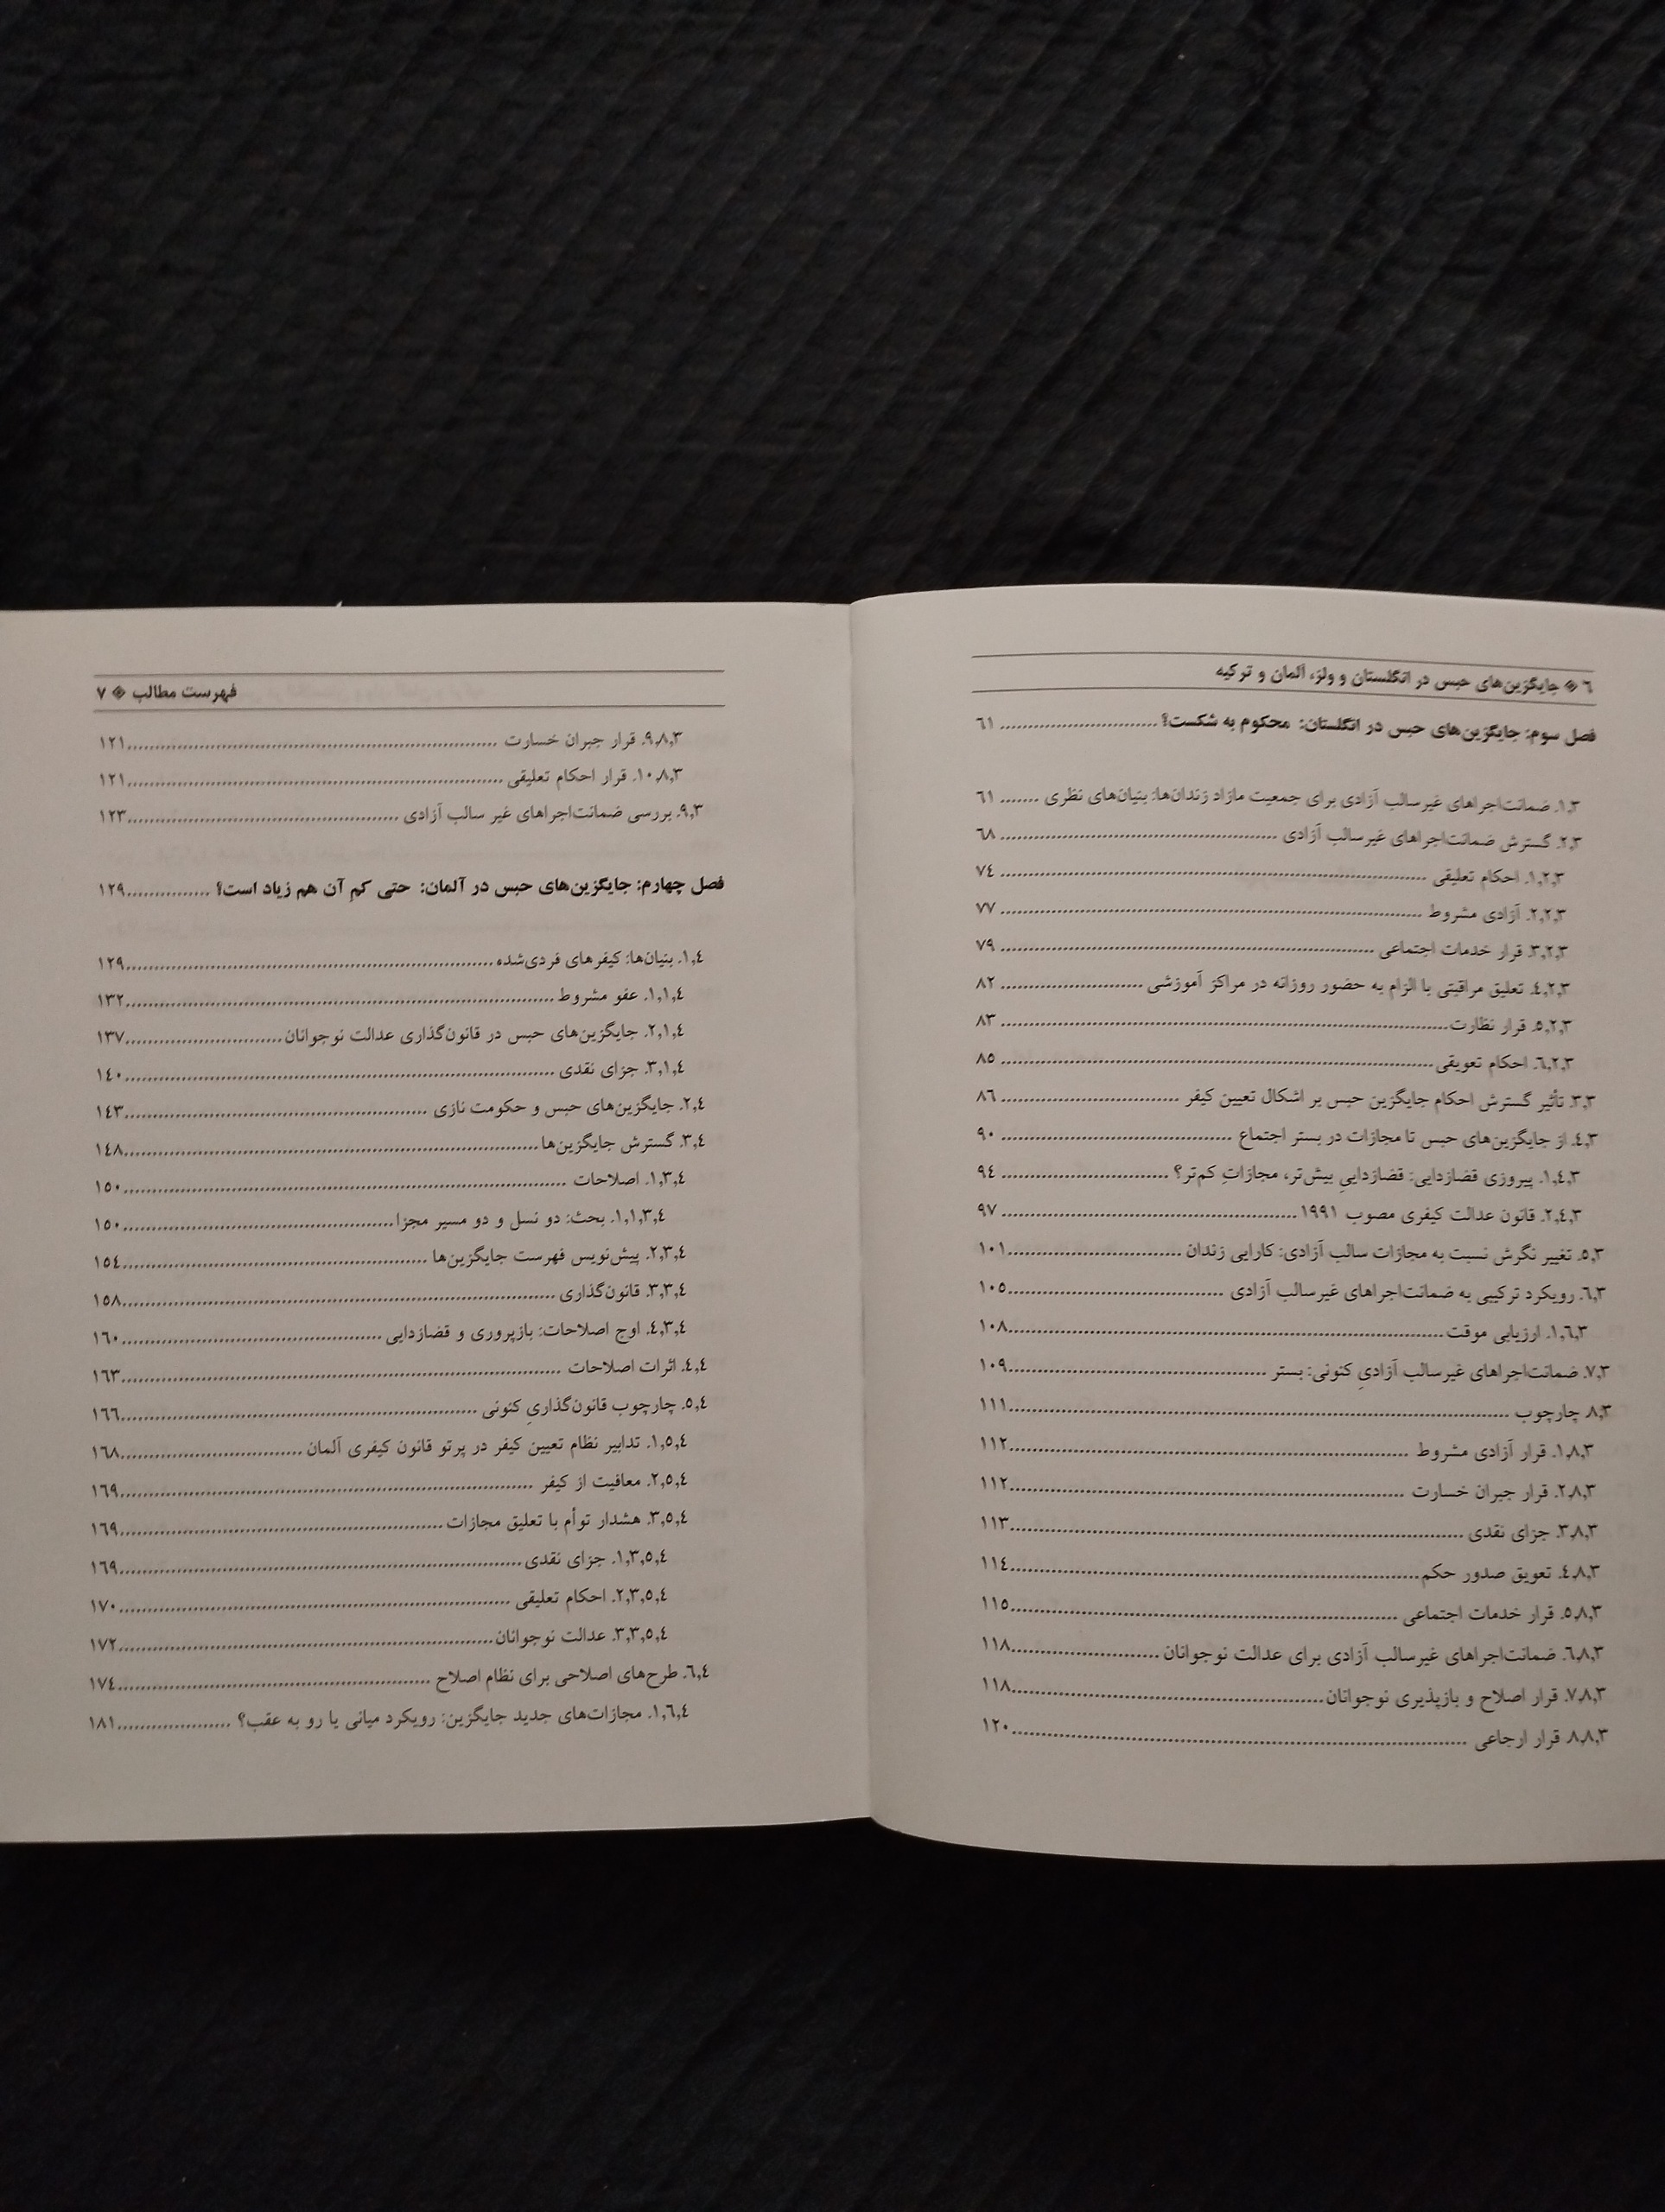 ٦ ◈ جایگزین‌های حبس در انگلستان و ولز، آلمان و ترکیه
فصل سوم: جایگزین‌های حبس در انگلستان: محکوم به شکست؟ .......................... ٦١
١,٣. ضمانت‌اجراهای غیرسالب آزادی برای جمعیت مازاد زندان‌ها: بنیان‌های نظری ....... ٦١
٢,٣. گسترش ضمانت‌اجراهای غیرسالب آزادی .......................... ٦٨
١,٢,٣. احکام تعلیقی .......................... ٧٤
٢,٢,٣. آزادی مشروط .......................... ٧٧
٣,٢,٣. قرار خدمات اجتماعی .......................... ٧٩
٤,٢,٣. تعلیق مراقبتی با الزام به حضور روزانه در مراکز آموزشی .......................... ٨٢
٥,٢,٣. قرار نظارت .......................... ٨٣
٦,٢,٣. احکام تعویقی .......................... ٨٥
٣,٣. تأثیر گسترش احکام جایگزین حبس بر اشکال تعیین کیفر .......................... ٨٦
٤,٣. از جایگزین‌های حبس تا مجازات در بستر اجتماع .......................... ٩٠
١,٤,٣. پیروزی قضازدایی: قضازداییِ بیش‌تر، مجازاتِ کم‌تر؟ .......................... ٩٤
٢,٤,٣. قانون عدالت کیفری مصوب ١٩٩١ .......................... ٩٧
٥,٣. تغییر نگرش نسبت به مجازات سالب آزادی: کارایی زندان .......................... ١٠١
٦,٣. رویکرد ترکیبی به ضمانت‌اجراهای غیرسالب آزادی .......................... ١٠٥
١,٦,٣. ارزیابی موقت .......................... ١٠٨
٧,٣. ضمانت‌اجراهای غیرسالب آزادیِ کنونی: بستر .......................... ١٠٩
٨,٣. چارچوب .......................... ١١١
١,٨,٣. قرار آزادی مشروط .......................... ١١٢
٢,٨,٣. قرار جبران خسارت .......................... ١١٢
٣,٨,٣. جزای نقدی .......................... ١١٣
٤,٨,٣. تعویق صدور حکم .......................... ١١٤
٥,٨,٣. قرار خدمات اجتماعی .......................... ١١٥
٦,٨,٣. ضمانت‌اجراهای غیرسالب آزادی برای عدالت نوجوانان .......................... ١١٨
٧,٨,٣. قرار اصلاح و بازپذیری نوجوانان .......................... ١١٨
٨,٨,٣. قرار ارجاعی .......................... ١٢٠
فهرست مطالب ◈ ٧
٩,٨,٣. قرار جبران خسارت .......................... ١٢١
١٠,٨,٣. قرار احکام تعلیقی .......................... ١٢١
٩,٣. بررسی ضمانت‌اجراهای غیر سالب آزادی .......................... ١٢٣
فصل چهارم: جایگزین‌های حبس در آلمان: حتی کمِ آن هم زیاد است؟ ............... ١٢٩
١,٤. بنیان‌ها: کیفرهای فردی‌شده .......................... ١٢٩
١,١,٤. عفو مشروط .......................... ١٣٢
٢,١,٤. جایگزین‌های حبس در قانون‌گذاری عدالت نوجوانان .......................... ١٣٧
٣,١,٤. جزای نقدی .......................... ١٤٠
٢,٤. جایگزین‌های حبس و حکومت نازی .......................... ١٤٣
٣,٤. گسترش جایگزین‌ها .......................... ١٤٨
١,٣,٤. اصلاحات .......................... ١٥٠
١,١,٣,٤. بحث: دو نسل و دو مسیر مجزا .......................... ١٥٠
٢,٣,٤. پیش‌نویس فهرست جایگزین‌ها .......................... ١٥٤
٣,٣,٤. قانون‌گذاری .......................... ١٥٨
٤,٣,٤. اوج اصلاحات: بازپروری و قضازدایی .......................... ١٦٠
٤,٤. اثرات اصلاحات .......................... ١٦٣
٥,٤. چارچوب قانون‌گذاریِ کنونی .......................... ١٦٦
١,٥,٤. تدابیر نظام تعیین کیفر در پرتو قانون کیفری آلمان .......................... ١٦٨
٢,٥,٤. معافیت از کیفر .......................... ١٦٩
٣,٥,٤. هشدار توأم با تعلیق مجازات .......................... ١٦٩
١,٣,٥,٤. جزای نقدی .......................... ١٦٩
٢,٣,٥,٤. احکام تعلیقی .......................... ١٧٠
٣,٣,٥,٤. عدالت نوجوانان .......................... ١٧٢
٦,٤. طرح‌های اصلاحی برای نظام اصلاح .......................... ١٧٤
١,٦,٤. مجازات‌های جدید جایگزین: رویکرد میانی یا رو به عقب؟ .................... ١٨١